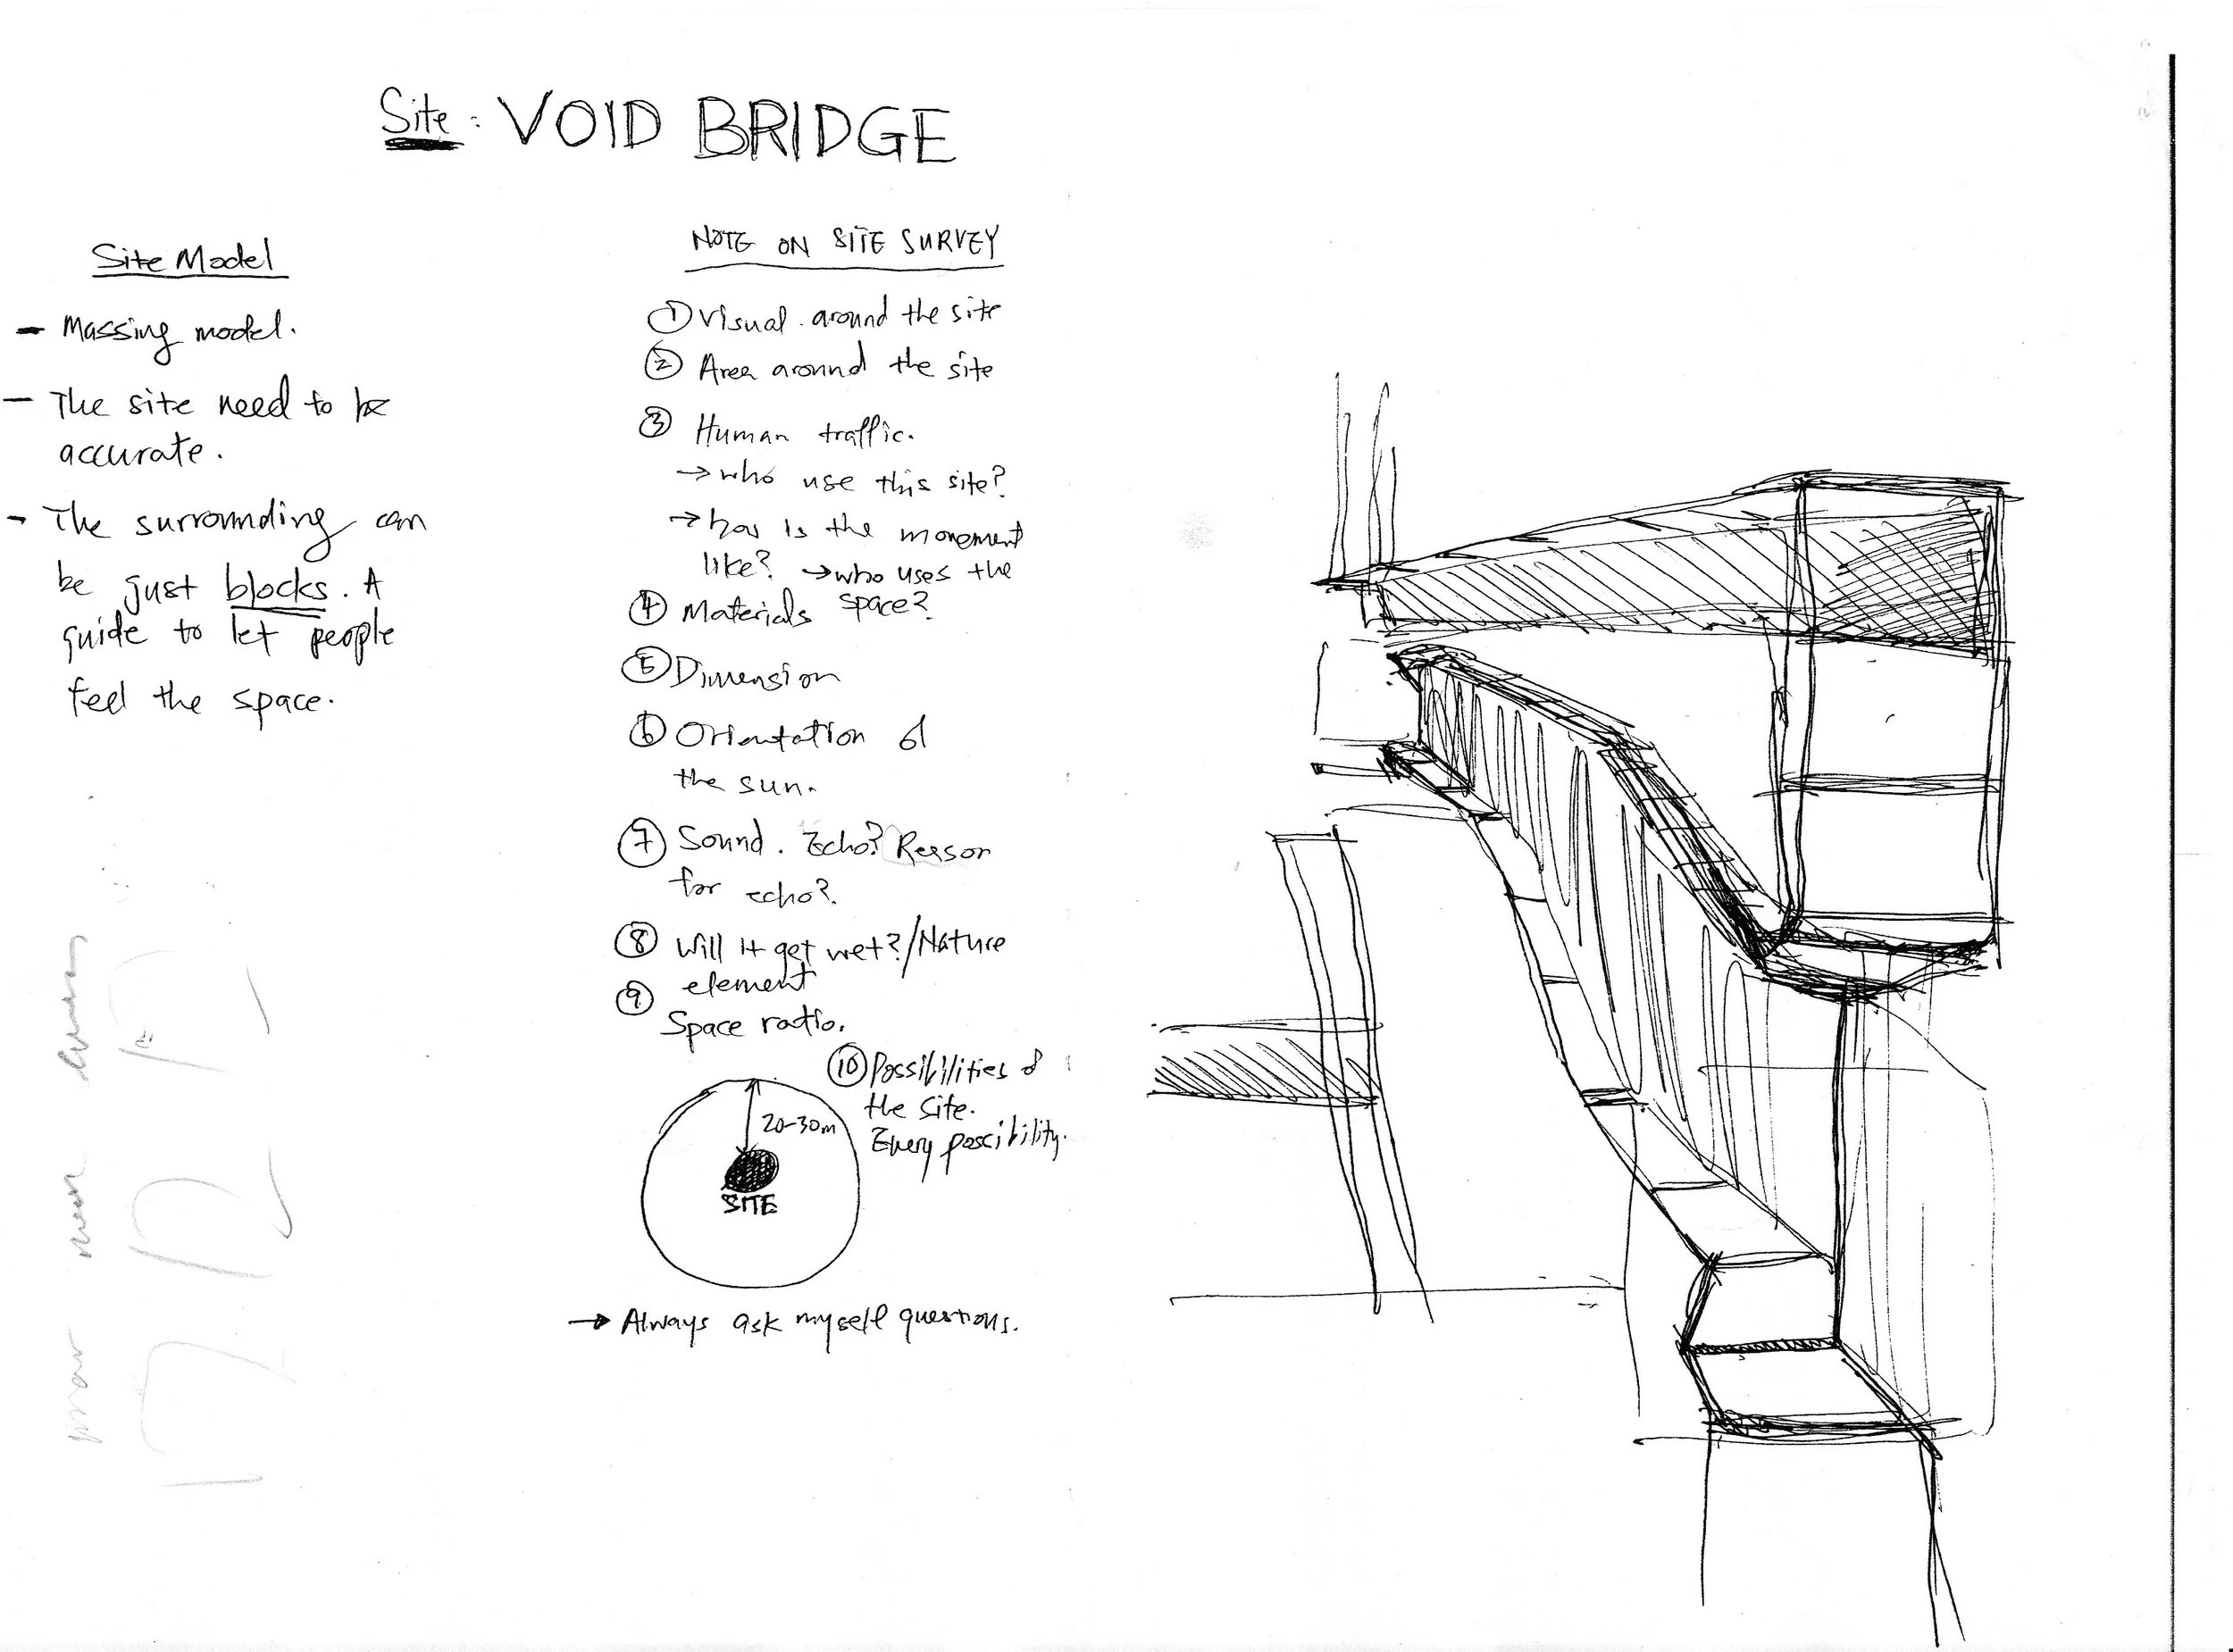 Site: VOID BRIDGE
Site Model
- Massing model.
- The site need to be
accurate.
- The surrounding can
be just blocks. A
guide to let people
feel the space.
NOTE ON SITE SURVEY
① Visual. around the site
② Area around the site
③ Human traffic.
→ who use this site?
→ how is the movement
like? → who uses the
space?
④ Materials
⑤ Dimension
⑥ Orientation of
the sun.
⑦ Sound. Echo? Reason
for echo?
⑧ Will it get wet?/Nature
element
⑨ Space ratio.
⑩ Possibilities of
the site.
Every possibility.
20-30m
SITE
→ Always ask myself questions.